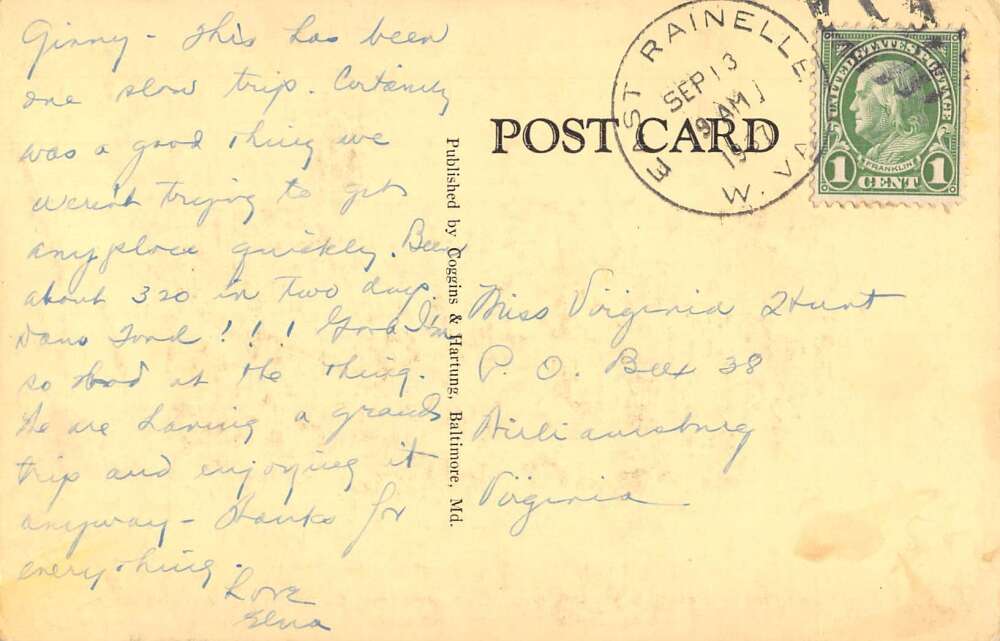 Ginny - This has been
one slow trip. Certainly
was a good thing we
weren't trying to get
anyplace quickly. Been
about 320 in two days.
Dans Ford ! ! ! I'm
so at the thing.
We are having a grand
trip and enjoying it
anyway - thanks for
everything.
Love
Elna
Published by Coggins & Hartung, Baltimore, Md.
POST CARD
EAST RAINELLE
SEP 13
9 AM
W. VA
UNITED STATES POSTAGE
FRANKLIN
1 CENT 1
Miss Virginia Hunt
P. O. Box 38
Williamsburg
Virginia